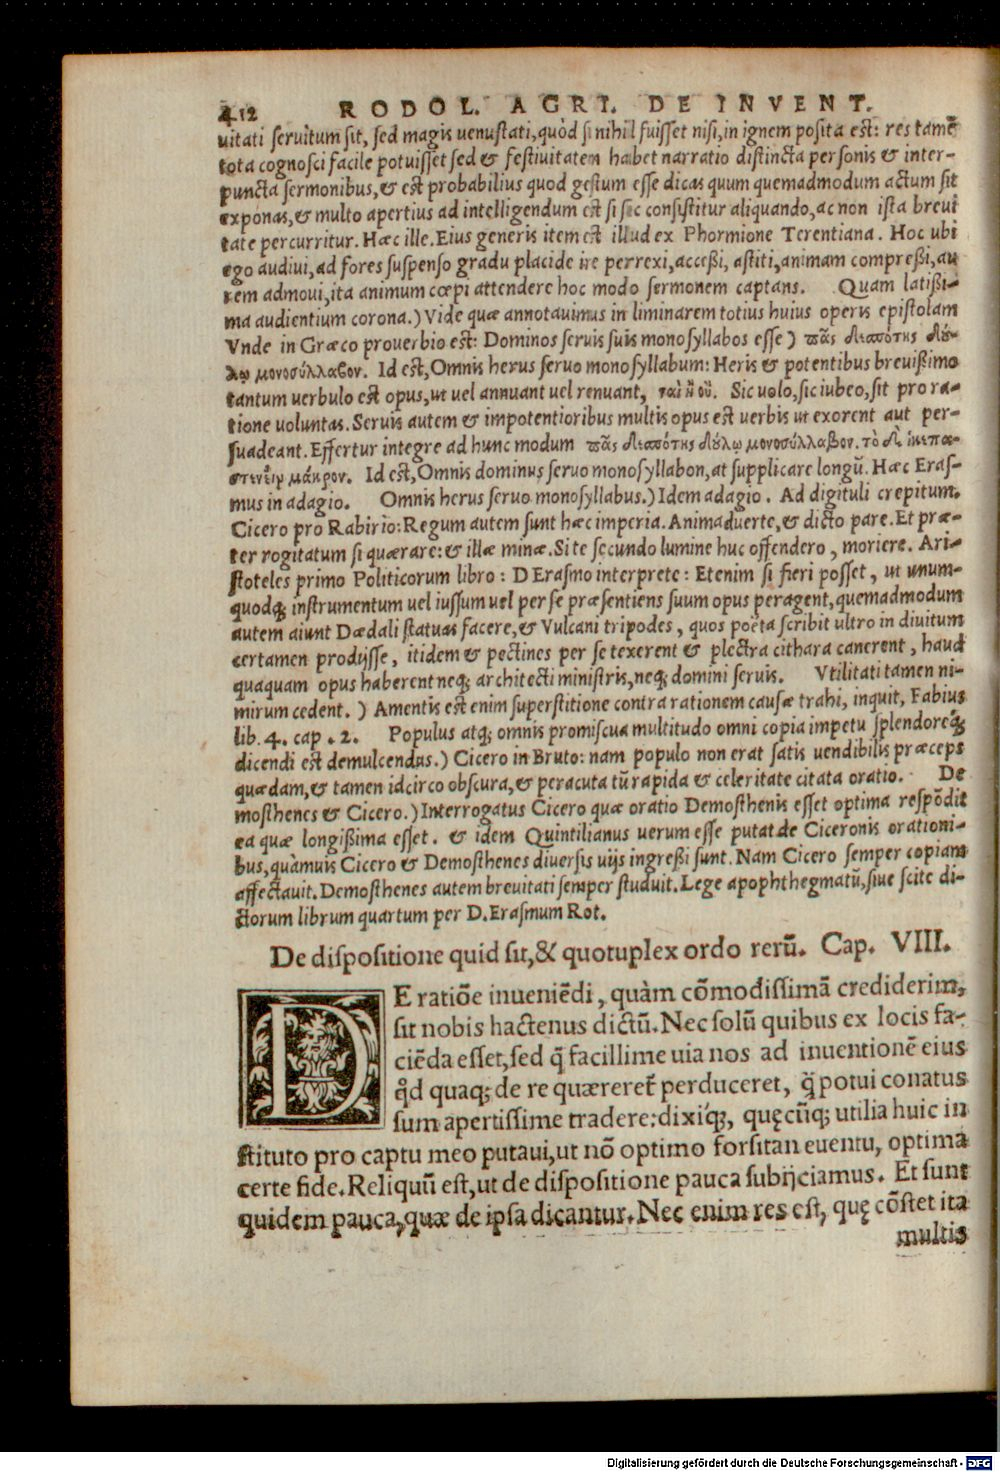 412 RODOL. AGRI. DE INVENT.
uitati seruitum sit, sed magis uenustati, quòd si nihil fuisset nisi, in ignem posita est: res tamẽ
tota cognosci facile potuisset sed & festiuitatem habet narratio distincta personis & inter-
puncta sermonibus, & est probabilius quod gestum esse dicas quum quemadmodum actum sit
exponas, & multo apertius ad intelligendum est si sic consistitur aliquando, ac non ista breui
tate percurritur. Hæc ille. Eius generis item est illud ex Phormione Terentiana. Hoc ubi
ego audiui, ad fores suspenso gradu placide ire perrexi, accessi, astiti, animam compressi, au
rem admoui, ita animum cœpi attendere hoc modo sermonem captans. Quam latissi-
ma audientium corona.) Vide quæ annotauimus in liminarem totius huius operis epistolam
Vnde in Græco prouerbio est: Dominos seruis suis monosyllabos esse) πᾶς δεσπότης δού-
λῳ μονοσύλλαβον. Id est, Omnis herus seruo monosyllabum: Heris & potentibus breuissimo
tantum uerbulo est opus, ut uel annuant uel renuant, ναὶ ἢ οὔ. Sic uolo, sic iubeo, sit pro ra-
tione voluntas. Seruis autem & impotentioribus multis opus est uerbis ut exorent aut per-
suadeant. Effertur integre ad hunc modum πᾶς δεσπότης δούλῳ μονοσύλλαβον. τὸ δ'
μάκρον. Id est, Omnis dominus seruo monosyllabon, at supplicare longũ. Hæc Eras-
mus in adagio. Omnis herus seruo monosyllabus.) Idem adagio. Ad digituli crepitum.
Cicero pro Rabirio: Regum autem sunt hæc imperia. Animaduerte, & dicto pare. Et præ-
ter rogitatum si quærare: & illæ minæ. Si te secundo lumine huc offendero, moriere. Ari-
stoteles primo Politicorum libro: D Erasmo interprete: Etenim si fieri posset, ut unum-
quodq; instrumentum uel iussum uel per se præsentiens suum opus peragent, quemadmodum
autem aiunt Dædali statuas facere, & Vulcani tripodes, quos poëta scribit ultro in diuitum
certamen prodijsse, itidem & pectines per se texerent & plectra cithara canerent, haud
quaquam opus haberent neq; architecti ministris, neq; domini seruis. Vtilitati tamen ni-
mirum cedent.) Amentis est enim superstitione contra rationem causæ trahi, inquit, Fabius
lib. 4. cap. 2. Populus atq; omnis promiscua multitudo omni copia impetu splendoreq;
dicendi est demulcendus.) Cicero in Bruto: nam populo non erat satis uendibilis præceps
quædam, & tamen idcirco obscura, & peracuta tũ rapida & celeritate citata oratio. De
mosthenes & Cicero.) Interrogatus Cicero quæ oratio Demosthenis esset optima respõdit
ea quæ longissima esset. & idem Quintilianus uerum esse putat de Ciceronis orationi-
bus, quàmuis Cicero & Demosthenes diuersis uijs ingressi sunt. Nam Cicero semper copiam
affectauit. Demosthenes autem breuitati semper studuit. Lege apophthegmatũ, siue scite di-
ctorum librum quartum per D. Erasmum Rot.
De dispositione quid sit, & quotuplex ordo rerũ. Cap. VIII.
DE ratiõe inueniẽdi, quàm cõmodissimã crediderim,
sit nobis hactenus dictũ. Nec solũ quibus ex locis fa-
ciẽda esset, sed q̃ facillime uia nos ad inuentionẽ eius
qd̃ quaq; de re quæreret̃ perduceret, q̃ potui conatus
sum apertissime tradere: dixiq́;, quęcũq; utilia huic in
stituto pro captu meo putaui, ut nõ optimo forsitan euentu, optima
certe fide. Reliquũ est, ut de dispositione pauca subijciamus. Et sunt
quidem pauca, quæ de ipsa dicantur. Nec enim res est, quę cõstet ita
multis
Digitalisierung gefördert durch die Deutsche Forschungsgemeinschaft - DFG